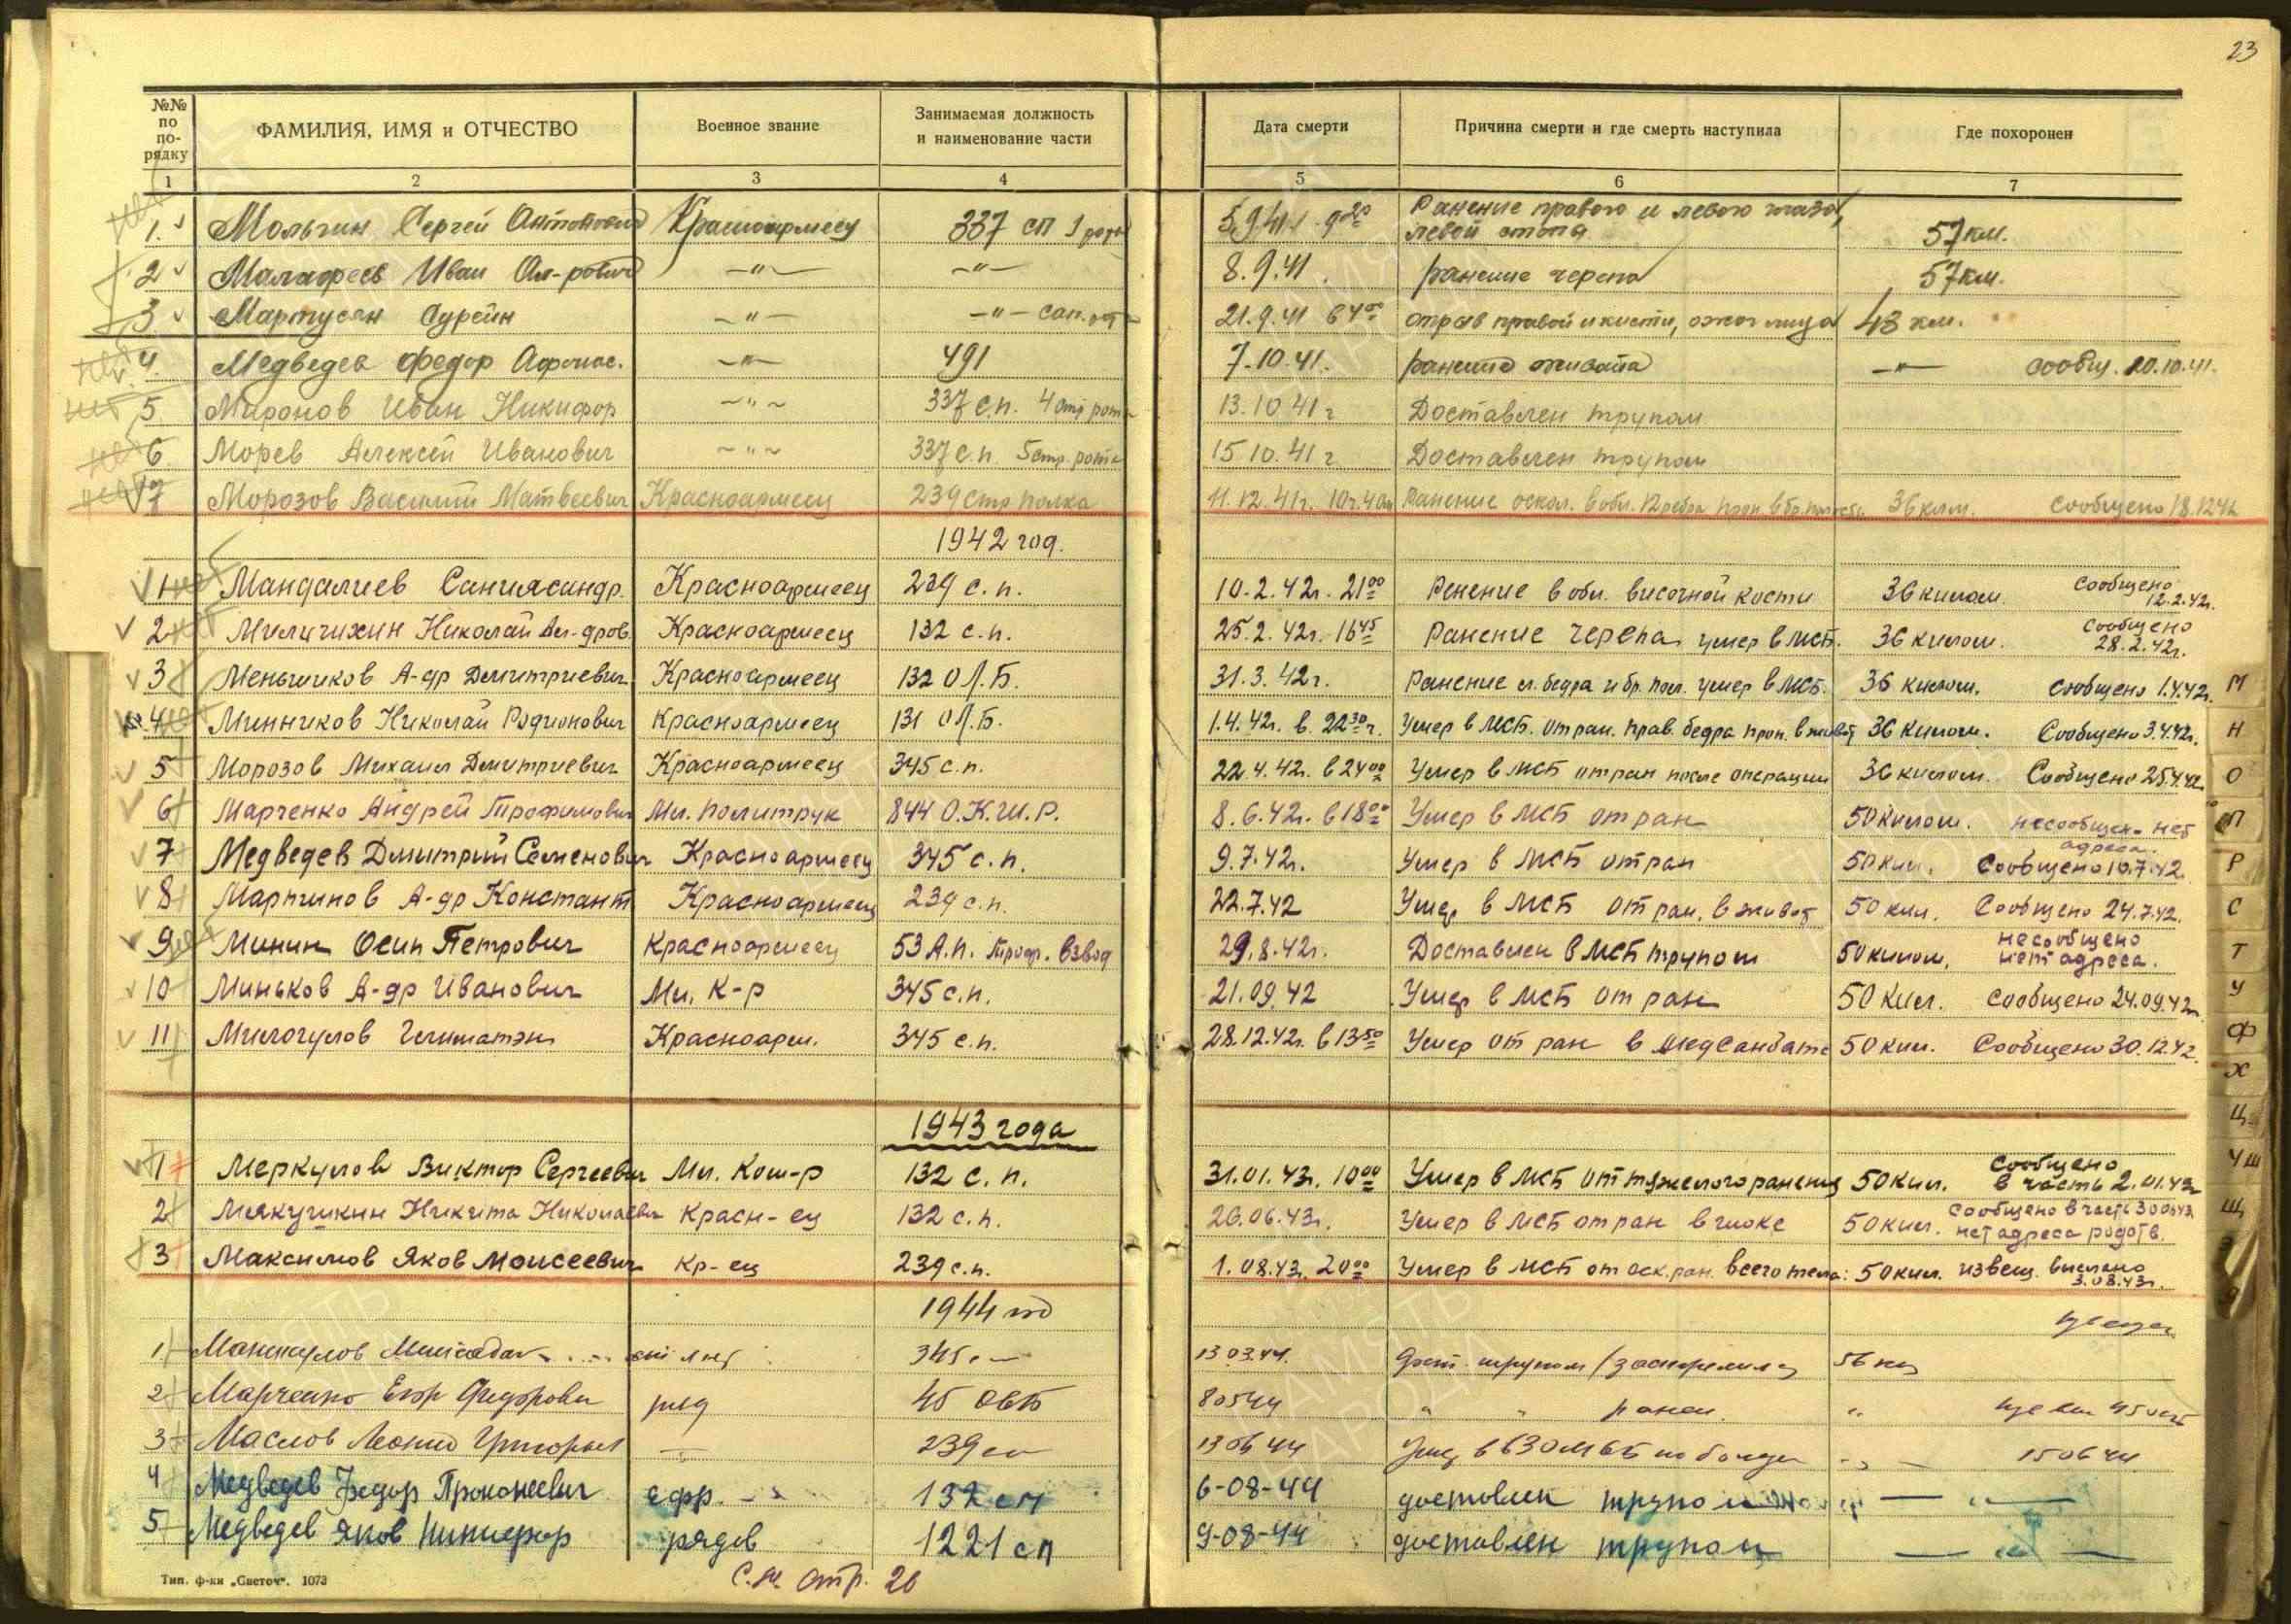 23
№№ по по-рядку ФАМИЛИЯ, ИМЯ и ОТЧЕСТВО Военное звание Занимаемая должность и наименование части Дата смерти Причина смерти и где смерть наступила Где похоронен
1 2 3 4 5 6 7
1. Мольгин Сергей Антонович Красноармеец 337 сп 1 рота 5.9.41 9 20 Ранение правого и левого глаза, левой стопа 57 км.
2 Малафеев Иван Ал-рович —"— —"— 8.9.41. ранение черепа 57 км.
3 Мартусян Сурейн —"— —"— сап. 21.9.41 6 4 отрыв правой кисти, ожог лица 43 км.
4. Медведев Федор Афонас. —"— 491 7.10.41. ранение живота —"— сообщ. 20.10.41.
5 Миронов Иван Никифор ~"~ 337 с.п. 4 стр рота 13.10.41 г Доставлен трупом
6 Морев Алексей Иванович ~"~ 337 с.п. 5 стр. рота 15.10.41 г Доставлен трупом
7 Морозов Василий Матвеевич Красноармеец 239 стр полка 11.12.41г. 10ч.40м Ранение оскол. в обл. 12 ребра прон. в бр. полость 36 клм. Сообщено 18.12.41
1942 год.
1 Мандалиев Саниясандр. Красноармеец 239 с.п. 10.2.42г. 21 00 Ренение в обл. височной кости 36 килом. Сообщено 12.2.42г.
2 Миличихин Николай Ал-дров. Красноармеец 132 с.п. 25.2.42г. 16 45 Ранение черепа умер в МСБ. 36 килом. Сообщено 28.2.42г.
3 Меньшиков А-др Дмитриевич Красноармеец 132 О.Л.Б. 31.3.42г. Ранение л. бедра и бр. пол. умер в МСБ. 36 килом. Сообщено 1.4.42г. М
4 Минников Николай Родионович Красноармеец 131 О.Л.Б. 1.4.42г. в 22 30 г. Умер в МСБ. от ран. прав. бедра прон. в живот 36 килом. Сообщено 3.4.42г. Н
5 Морозов Михаил Дмитриевич Красноармеец 345 с.п. 22.4.42г. в 24 00 Умер в МСБ от ран после операции 36 килом. Сообщено 25.4.42г О
6 Марченко Андрей Трофимович Мл. политрук 844 О.К.Ш.Р. 8.6.42г. в 18 00 Умер в МСБ от ран 50 килом. несообщен. нет адреса. П
7 Медведев Дмитрий Семенович Красноармеец 345 с.п. 9.7.42г. Умер в МСБ от ран 50 кил. Сообщено 10.7.42. Р
8 Мартинов А-др Константи Красноармеец 239 с.п. 22.7.42 Умер в МСБ от ран. в живот 50 кил. Сообщено 24.7.42. С
9 Минин Осип Петрович Красноармеец 53 А.п. Троф. взвод 29.8.42г. Доставлен в МСБ трупом 50 килом. несообщено нет адреса. Т
10 Миньков А-др Иванович Мл. к-р 345 с.п. 21.09.42 Умер в МСБ от ран 50 кил. Сообщено 24.09.42г. У
11 Милогулов Красноарм. 345 с.п. 28.12.42г. в 13 50 Умер от ран в медсанбате 50 кил. Сообщено 30.12.42. Ф
Х
Ц
1943 года
1 Меркулов Виктор Сергеевич Мл. Ком-р 132 с.п. 31.01.43г. 10 00 Умер в МСБ от тяжелого ранения 50 кил. Сообщено в часть 2.01.43г Ч Ш
2 Мякушкин Никита Николаевич Красн-ец 132 с.п. 26.06.43г. Умер в МСБ от ран в шоке 50 кил. Сообщено в часть 30.06.43 нет адреса родств. Щ
3 Максимов Яков Моисеевич Кр-ец 239 с.п. 1.08.43г. 20 00 Умер в МСБ от оск. ран. всего тела: 50 кил. извещ. выслано 3.08.43г. Э
1944 год Я
1 345 13.03.44. Дост. трупом 56 км
2 Марченко Егор Федорович ряд 45 8.05.44 " " ранен. "
3 Маслов Леонид Григорьев 239 сп 13.06.44 15.06.44
4 Медведев Федор Прокопеевич ефр. 132 сп 6-08-44 доставлен трупом — " —
5 Медведев Яков Никифор рядов 1221 сп 9-08-44 доставлен трупом — " —
Тип. ф-ки „Светоч“. 1073
См. стр. 26